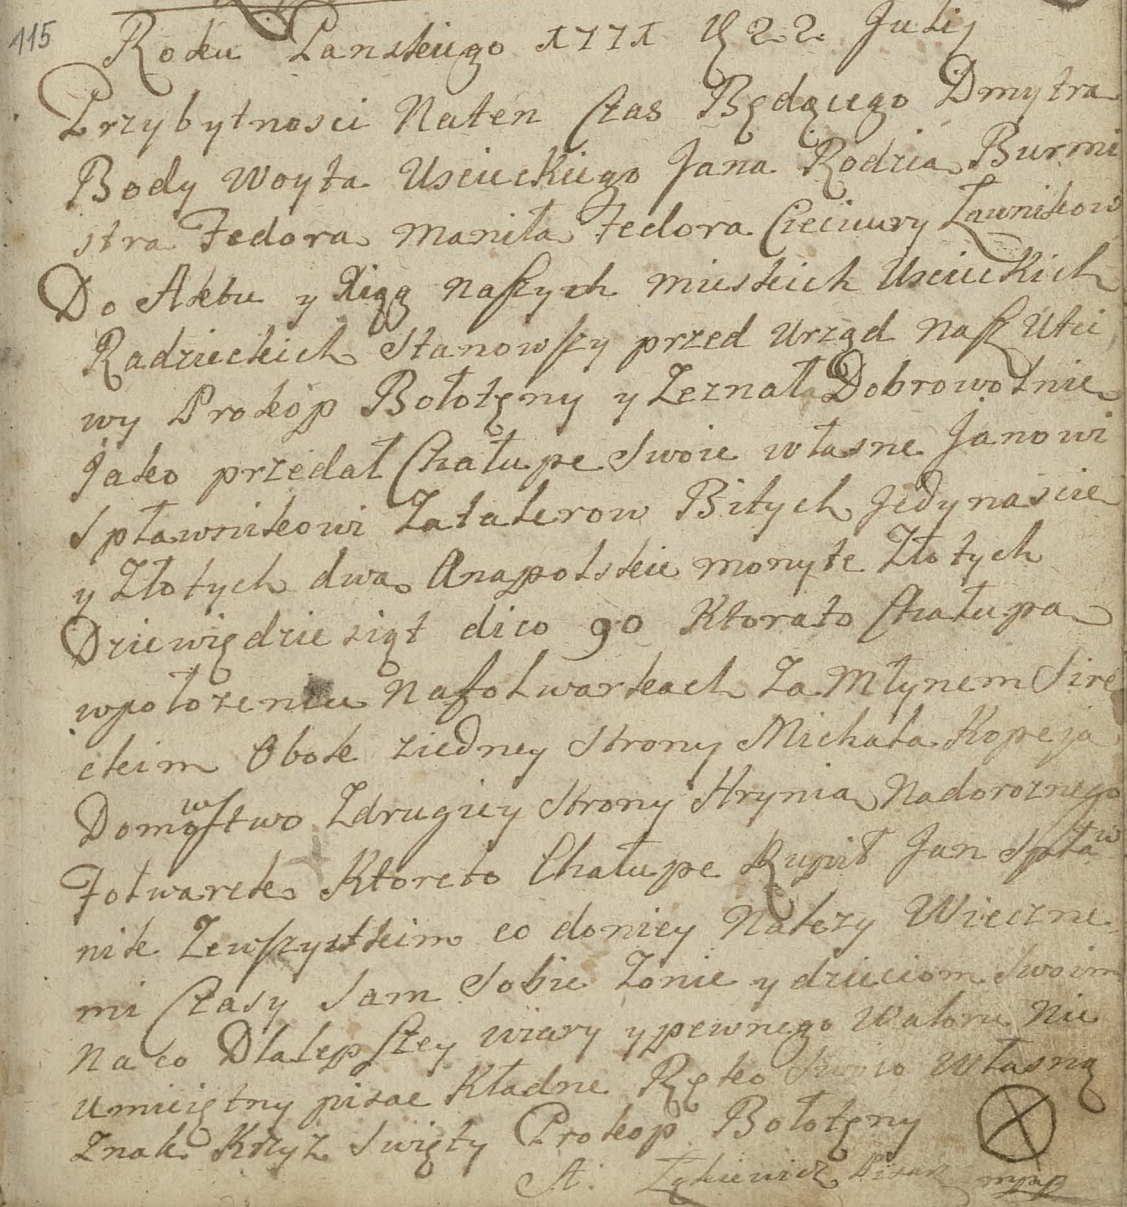 115
Roku Panskiego 1771 D 22 Julij
Przybytnosci Naten Czas Będącego Dmytra
Body Woyta Uscieckiego Jana Rodzia Burmi
stra Fedora Maniła Fedora Cieciury Ławnikow
Do Aktu y Xiąg naszych mieskich Uscieckich
Radzieckich Stanowszy przed Urząd nasz Utci
wy Prokop Bołotęny y Zeznał Dobrowolnie
Jako przedał Chałupe Swoie własne Janowi
Spławnikowi Zatalerow Bitych Jedynascie
y Złotych dwa Anapolskie monyte Złotych
Dziewiędziesiąt dico 90 Ktorato Chałupa
wpołozeniu Nafolwarkach Za Młynem Sire
ckim Obok ziedney Strony Michała Kopeja
Domowstwo Zdrugiey Strony Hrynia Nadoroznego
Folwarek Ktoreto Chałupe Kupił Jan Spław
nik Zewszystkim co doniey Nalezy Wieczne
mi Czasy Sam Sobie Zonie y dzieciom Swoim
Naco Dlalepszey wiary ypewnego Waloru Nie
umieiętny pisac Kładne Ręko Swoio Własną
Znak Krzyz Swięty Prokop Bołotęny
A: Pisarz mpp